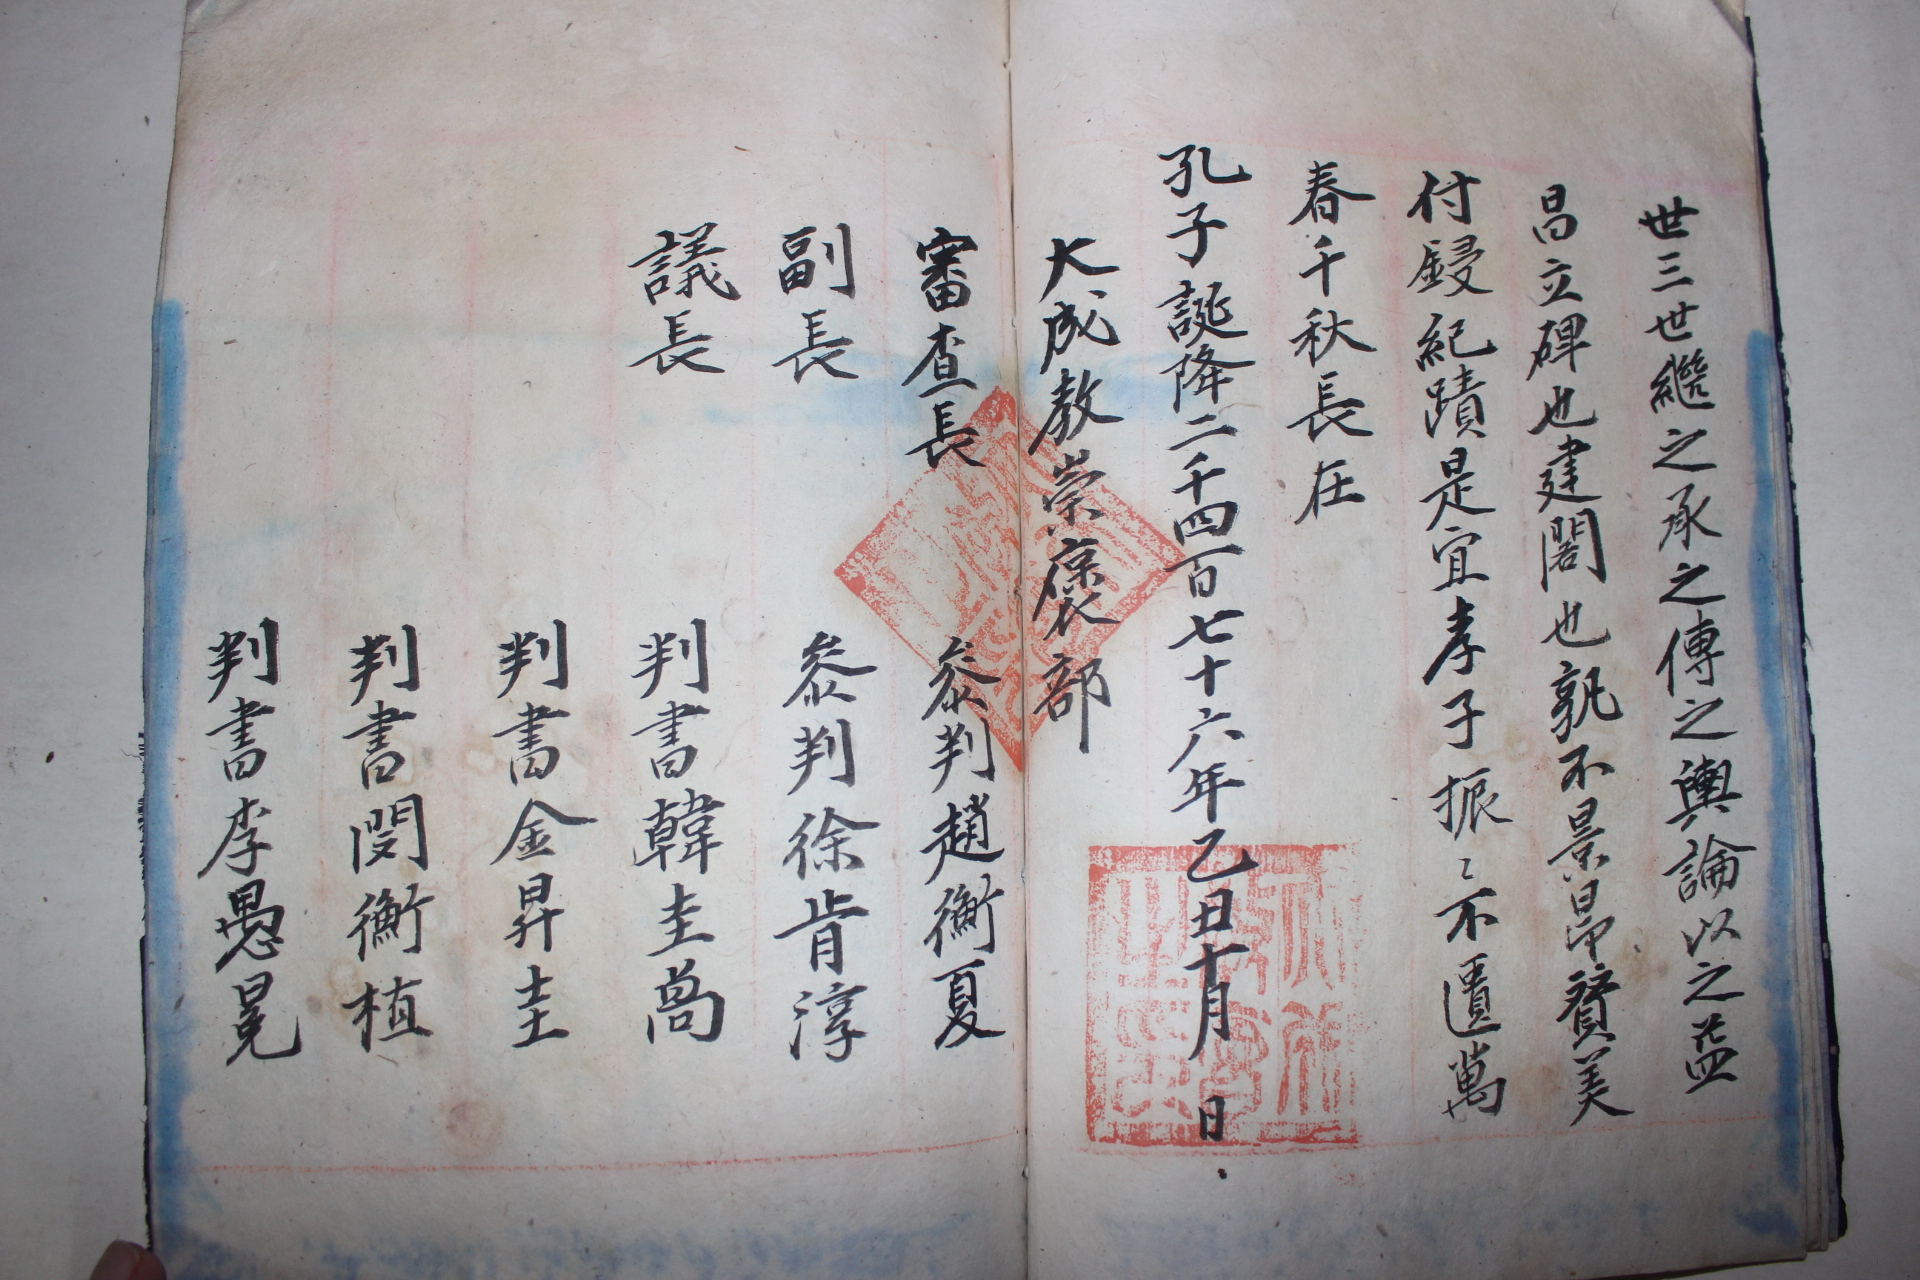 世三世繼之承之傳之輿論以之益
昌立碑也建閣也孰不景昂賛美
付鋟紀蹟是宜孝子振〻不匱萬
春千秋長在
孔子誕降二千四百七十六年乙丑十月 日
大成教崇褒部
審查長 叅判趙衡夏
副長 叅判徐肯淳
議長 判書韓圭卨
判書金昇圭
判書閔衡植
判書李愚冕